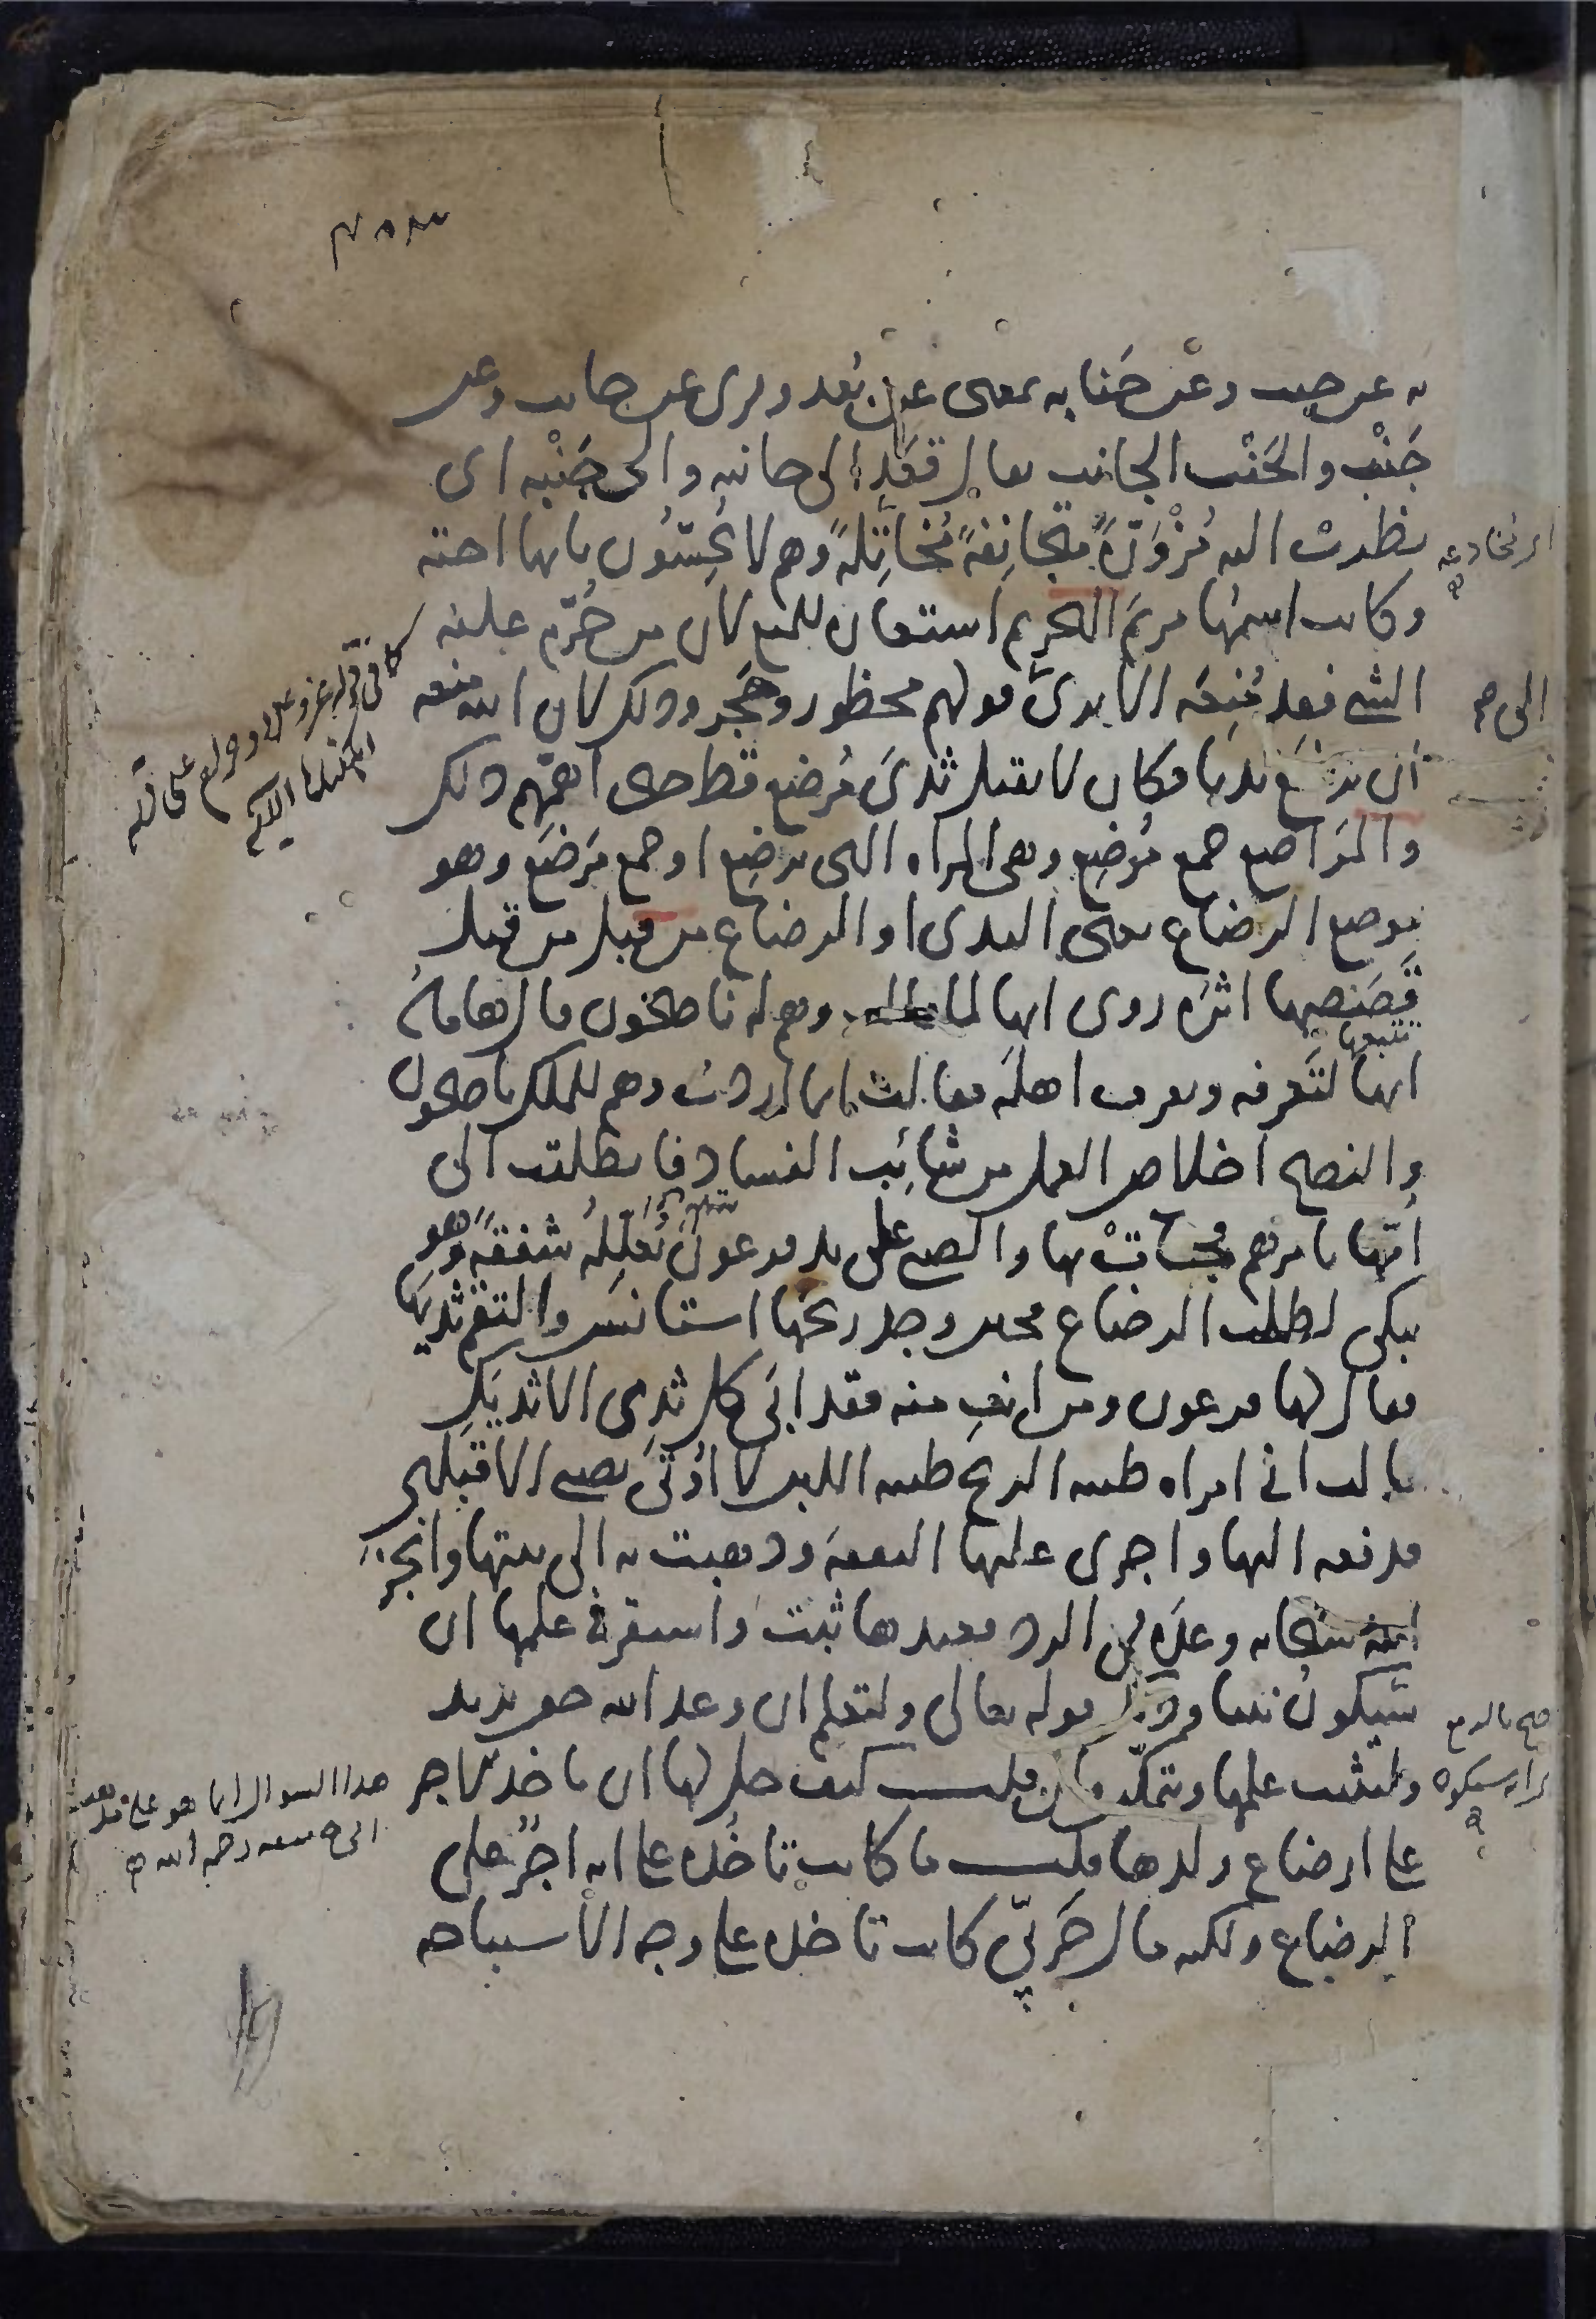 به عن جنب وعن جَنابه بمعنى عن بُعد وقرى عن جانب وعن
جَنْب والجَنْب الجانب يقال قعَد الى جانبه والى جَنْبه اى
نظرت اليه مُزْوَرّةً متجانِفةً مُخاتِلةً وهم لا يُحِسّون بانها اخته
وكان اسمها مريَم التحريم استعاره للمنع لان من حُرّم عليه
الشى فقد مُنِعَه الا ترى قولهم محظور وحَجْر وذلك لان الله منعه
ان يرضع ثديا فكان لا يقبل ثدىَ مُرضِع قط حتى اهمّهم ذلك
والمَراضع جمع مُرضِع وهى المراه التى ترضِع او جمع مَرضَع وهو
موضع الرضاع يعنى الثدى او الرضاع من قبل من قبل
قَصَصِها اثرَه روى انها لما قالت وهم له ناصحون قال هامانُ
انها لتَعرفه وتعرف اهلَه فقالت انما اردتُ وهم للملك ناصحون
والنصح اخلاص العمل من شائِب الفساد فانطلقت الى
اُمّها بامرهم فجاتْ بها والصبى على يد فرعون يُعلّلُه شفقةً وهو
يبكى لطلب الرضاع فحين وجد ريحَها استانَس والتقم ثديَها
فقال لها فرعون ومن انتِ منه فقد ابَى كل ثدى الا ثديَكِ
قالت انى امراه طيبه الريح طيبه اللبن لا اُوتَى بصبى الا قبلنى
فدفعه اليها واجرى عليها النفقه وذهبت به الى بيتها وانجز
الله سبحانه وعدَه فى الرد فعندها ثبت واستقر فى علمها ان
سيكونُ نبيا وذلك قوله تعالى ولتعلم ان وعد الله حق يريد
وليثبت علمها ويتمكّن فان قلت كيف حل لها ان تاخذ الاجر
على ارضاع ولدها قلت ما كانت تاخُذه على انه اجرٌ على
الرضاع ولكنه مال حَربىّ كانت تاخذه على وجه الاستباحه
اى مُخادعه
تتبعها
صح بالرفع
هذا السوال انما هو على مذهب
ابى حنيفه رحمه الله